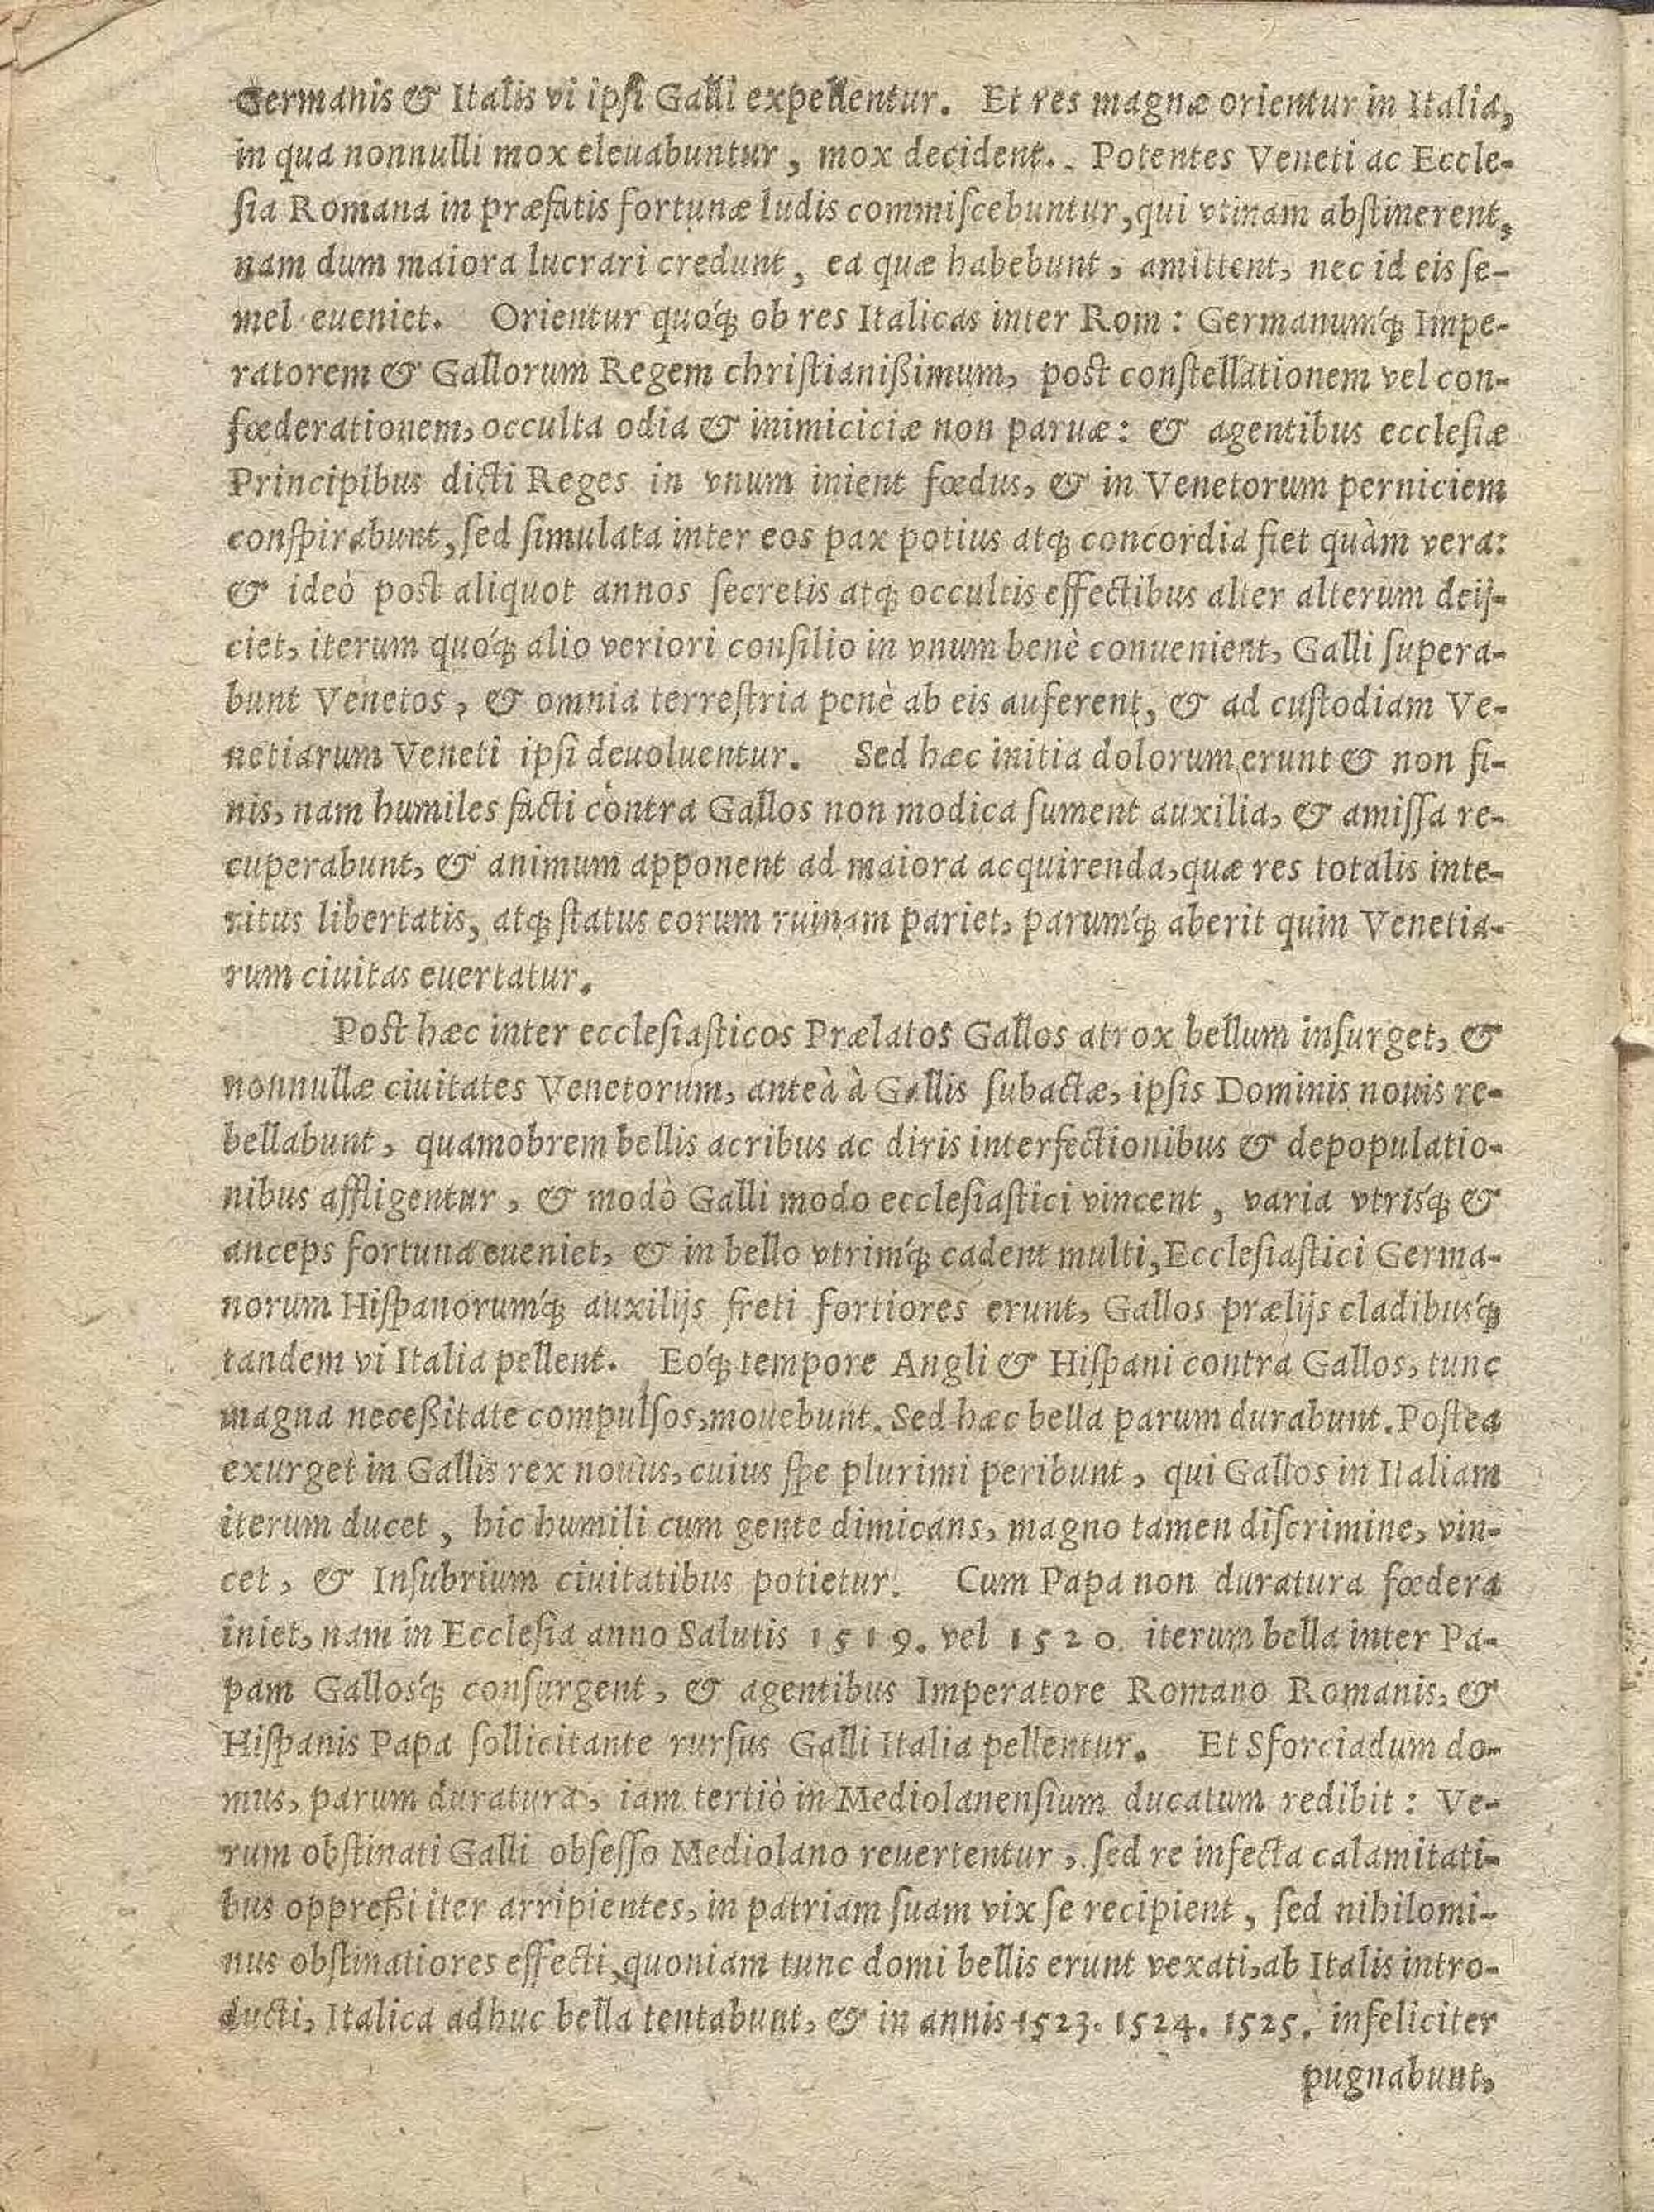 Germanis & Italis vi ipſi Galli expellentur. Et res magnæ orientur in Italia,
in qua nonnulli mox eleuabuntur, mox decident. Potentes Veneti ac Eccle-
ſia Romana in præfatis fortunæ ludis commiſcebuntur, qui vtinam abſtinerent,
nam dum maiora lucrari credunt, ea quæ habebunt, amittent, nec id eis ſe-
mel eueniet. Orientur quoq́ꝫ ob res Italicas inter Rom: Germanumq́ꝫ Impe-
ratorem & Gallorum Regem chriſtianißimum, poſt conſtellationem vel con-
fœderationem, occulta odia & inimiciciæ non paruæ: & agentibus eccleſiæ
Principibus dicti Reges in vnum inient fœdus, & in Venetorum perniciem
conſpirabunt, ſed ſimulata inter eos pax potius atqꝫ concordia fiet quàm vera:
& ideò poſt aliquot annos ſecretis atqꝫ occultis effectibus alter alterum deij-
ciet, iterum quoq́ꝫ alio veriori conſilio in vnum benè conuenient, Galli ſupera-
bunt Venetos, & omnia terreſtria penè ab eis auferent, & ad cuſtodiam Ve-
netiarum Veneti ipſi deuoluentur. Sed hæc initia dolorum erunt & non fi-
nis, nam humiles facti contra Gallos non modica ſument auxilia, & amiſſa re-
cuperabunt, & animum apponent ad maiora acquirenda, quæ res totalis inte-
ritus libertatis, atqꝫ ſtatus eorum ruinam pariet, parumq́ꝫ aberit quin Venetia-
rum ciuitas euertatur.
Poſt hæc inter eccleſiaſticos Prælatos Gallos atrox bellum inſurget, &
nonnullæ ciuitates Venetorum, anteà à Gallis ſubactæ, ipſis Dominis nouis re-
bellabunt, quamobrem bellis acribus ac diris interfectionibus & depopulatio-
nibus affligentur, & modò Galli modo eccleſiaſtici vincent, varia vtriſq́ꝫ &
anceps fortuna eueniet, & in bello vtrimq́ꝫ cadent multi, Eccleſiaſtici Germa-
norum Hiſpanorumq́ꝫ auxilijs freti fortiores erunt, Gallos prælijs cladibusq́ꝫ
tandem vi Italia pellent. Eoq́ꝫ tempore Angli & Hiſpani contra Gallos, tunc
magna neceßitate compulſos, mouebunt. Sed hæc bella parum durabunt. Poſtea
exurget in Gallis rex nouus, cuius ſpe plurimi peribunt, qui Gallos in Italiam
iterum ducet, hic humili cum gente dimicans, magno tamen diſcrimine, vin-
cet, & Inſubrium ciuitatibus potietur. Cum Papa non duratura fœdera
iniet, nam in Eccleſia anno Salutis 1519. vel 1520. iterum bella inter Pa-
pam Gallosq́ꝫ conſurgent, & agentibus Imperatore Romano Romanis, &
Hiſpanis Papa ſollicitante rurſus Galli Italia pellentur. Et Sforciadum do-
mus, parum duratura, iam tertiò in Mediolanenſium ducatum redibit: Ve-
rum obſtinati Galli obſeſſo Mediolano reuertentur, ſed re infecta calamitati-
bus oppreßi iter arripientes, in patriam ſuam vix ſe recipient, ſed nihilomi-
nus obſtinatiores effecti, quoniam tunc domi bellis erunt vexati, ab Italis intro-
ducti, Italica adhuc bella tentabunt, & in annis 1523. 1524. 1525. infeliciter
pugnabunt,